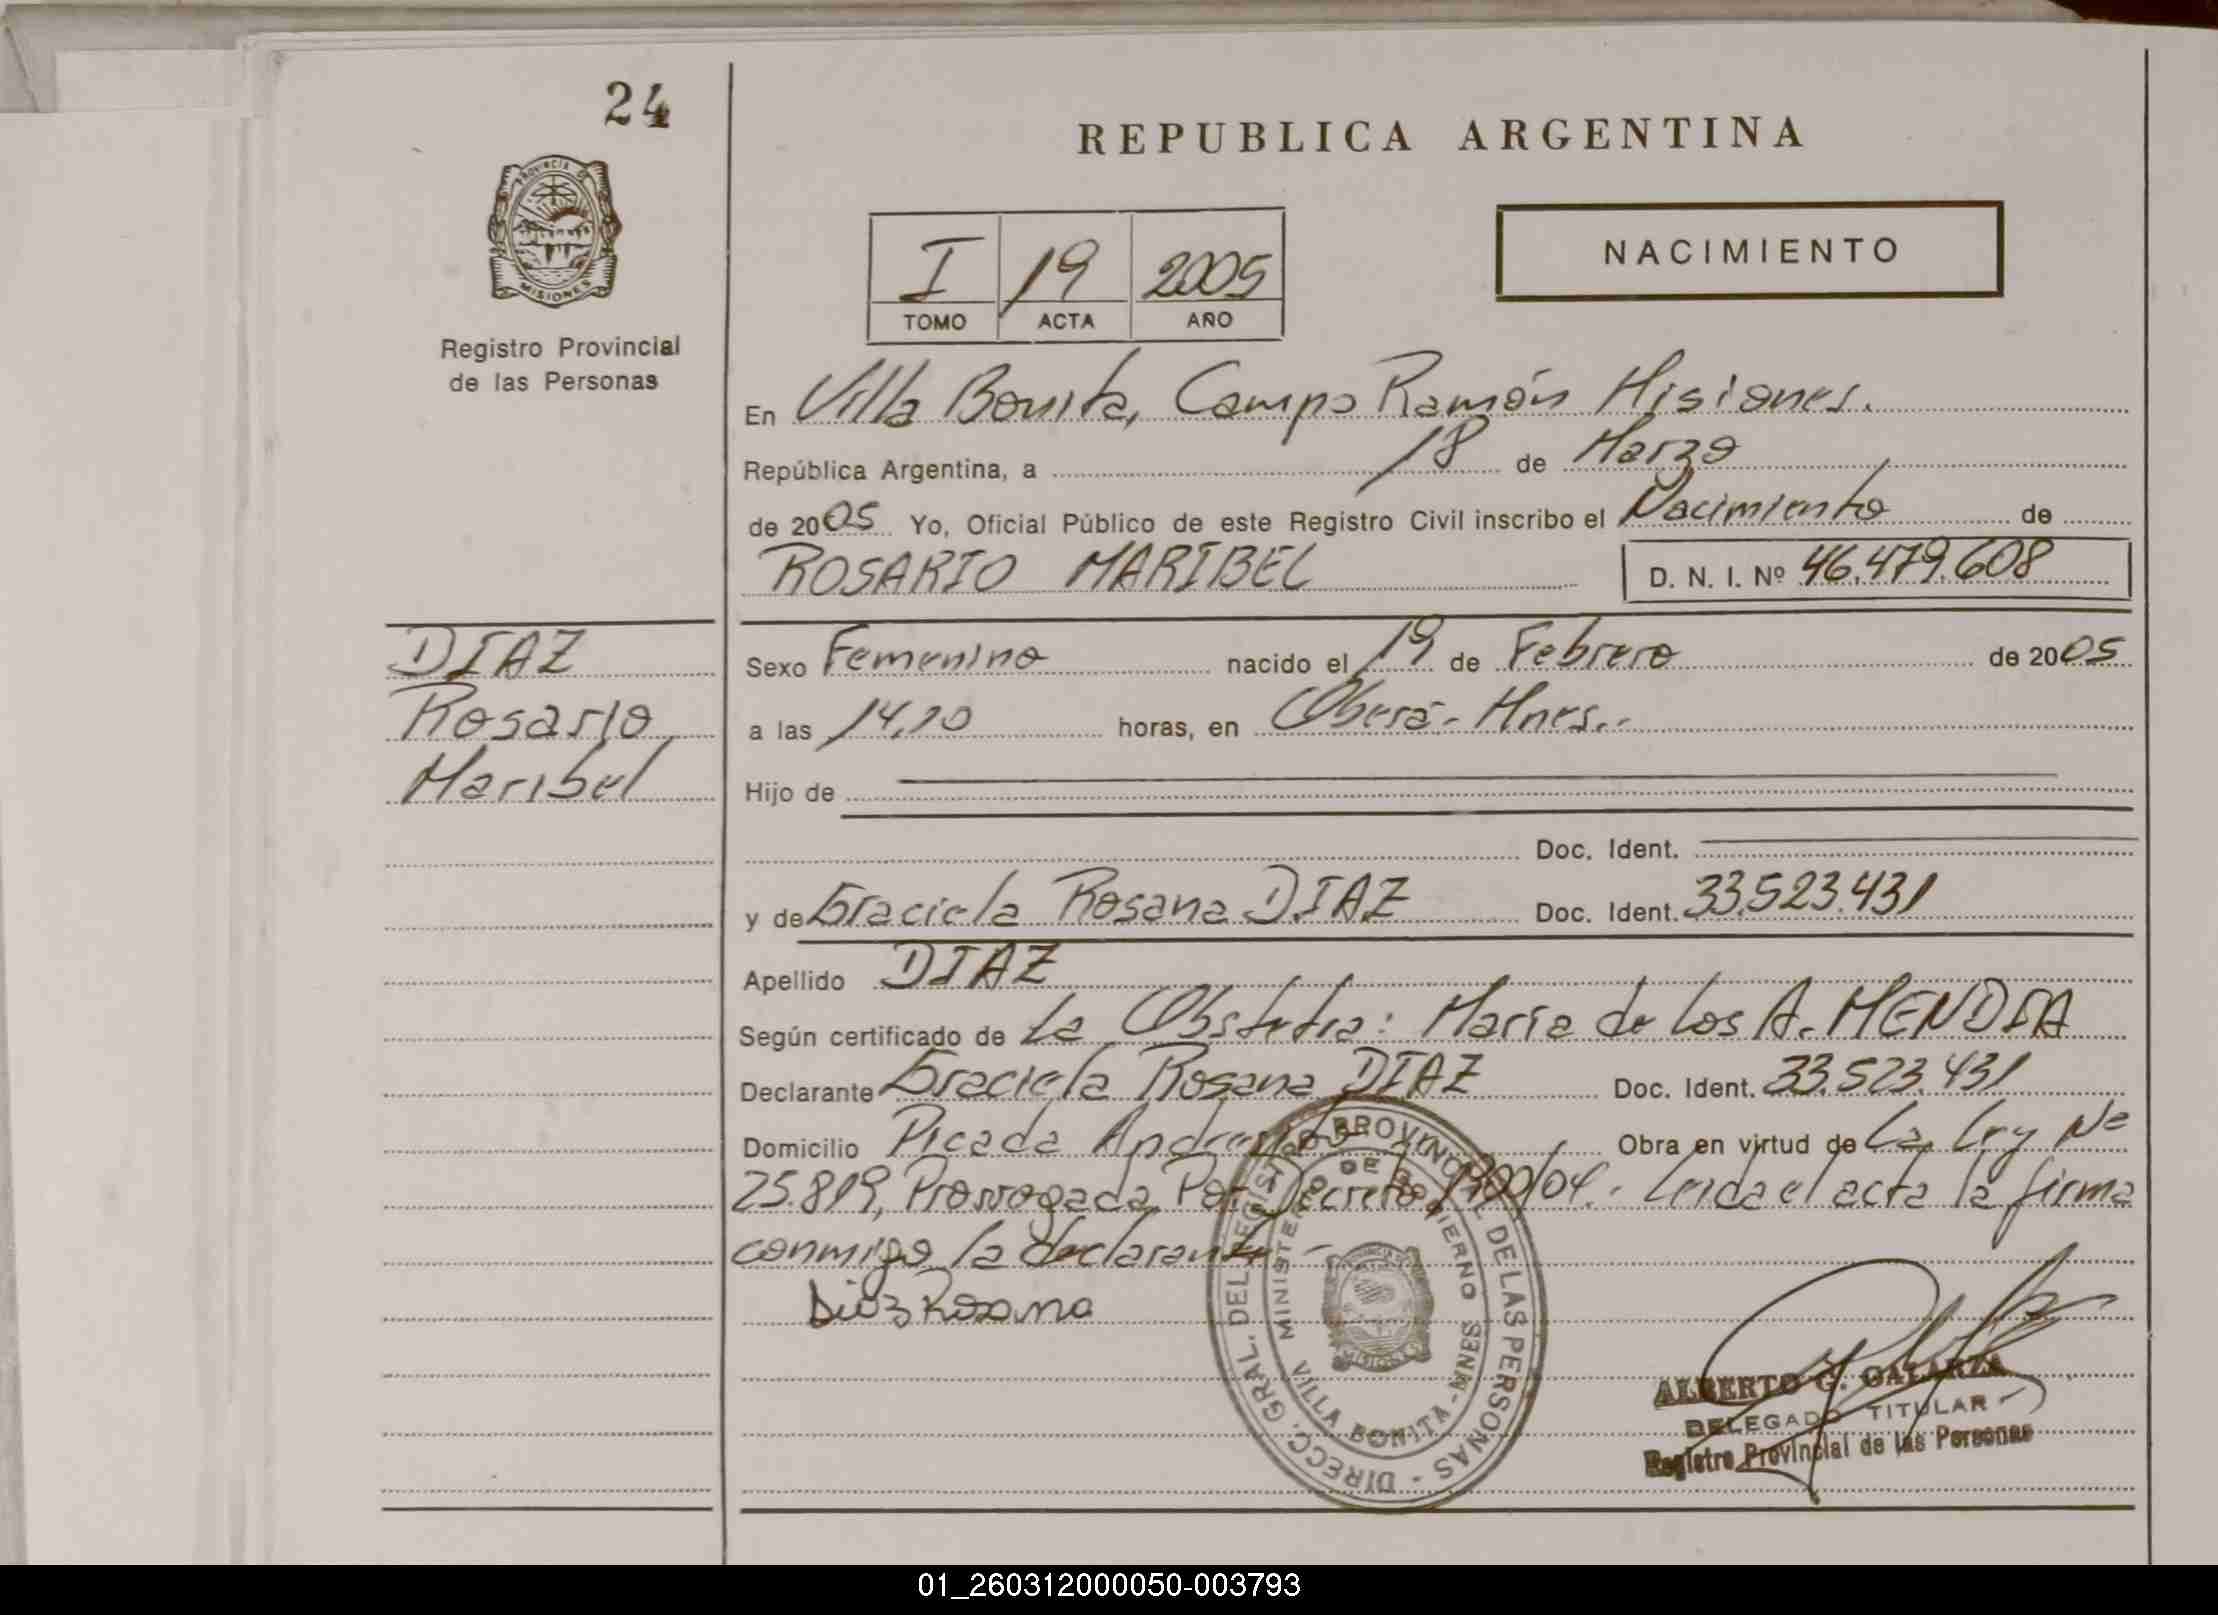 24
REPUBLICA ARGENTINA
PROVINCIA DE
MISIONES
Registro Provincial
de las Personas
NACIMIENTO
I 19 2005
TOMO ACTA AÑO
En Villa Bonita, Campo Ramón Misiones.
República Argentina, a 18 de Marzo
de 2005 Yo, Oficial Público de este Registro Civil inscribo el Nacimiento de
ROSARIO MARIBEL D. N. I. Nº 46.479.608
DIAZ
Rosario
Maribel
Sexo Femenino nacido el 19 de Febrero de 2005
a las horas, en Oberá - Mnes.-
Hijo de
Doc. Ident.
y de Graciela Rosana DIAZ Doc. Ident. 33.523.431
Apellido DIAZ
Según certificado de La Obstetra: María de los A.
Declarante Graciela Rosana DIAZ Doc. Ident. 33.523.431
Domicilio Picada Obra en virtud de La Ley Nº
25.819, Prorrogada Por Decreto /04.- Leida el acta la firma
conmigo la declarante -
Diaz Rosana
DIRECC. GRAL. DEL REGISTRO PROVINCIAL DE LAS PERSONAS -
MINISTERIO DE GOBIERNO
VILLA BONITA - MNES
MISIONES
ALBERTO G. GALARZA
DELEGADO TITULAR
Registro Provincial de las Personas
01_260312000050-003793